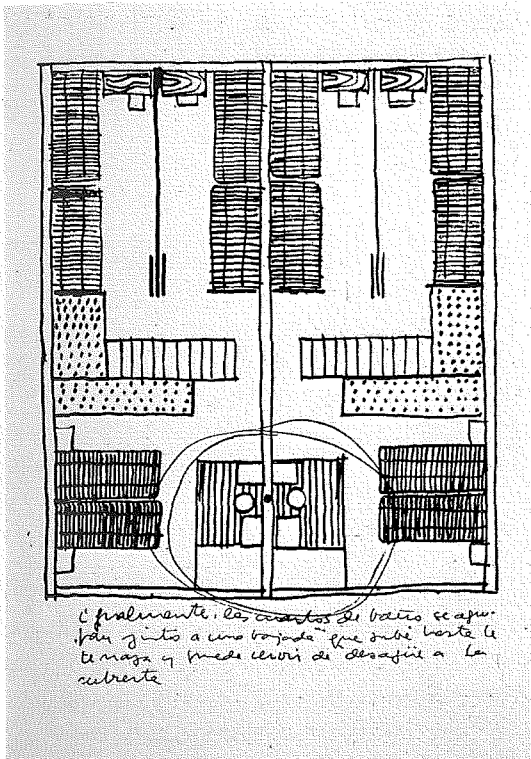 igualmente, los cuartos de baño se agru-
pan junto a una bajada que sube hasta la
terraza y puede servir de desagüe a la
cubierta